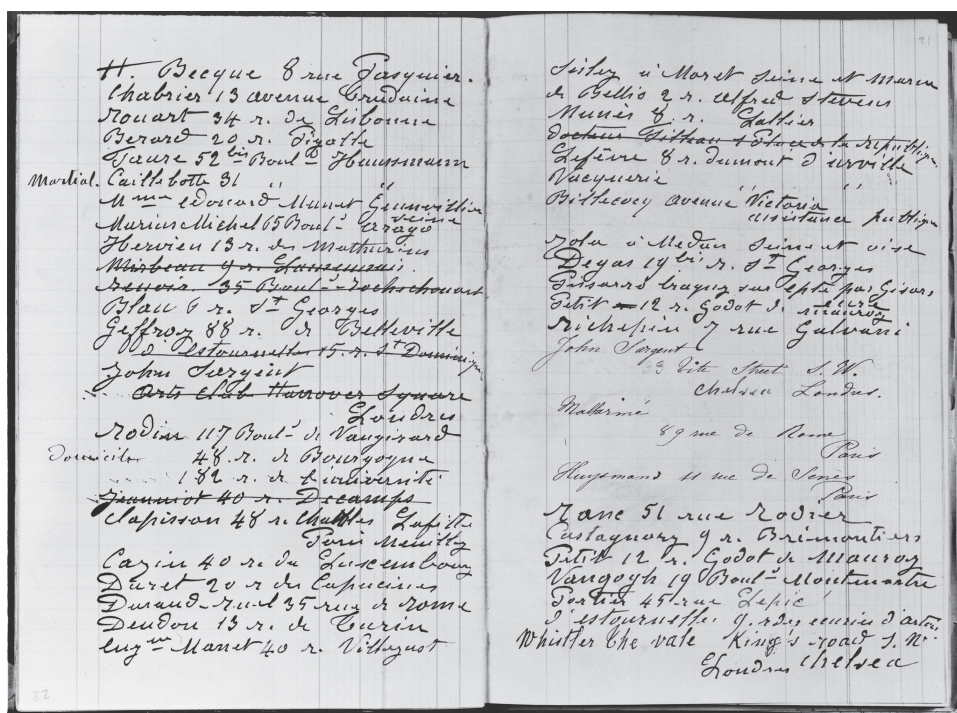 H. Becque 8 rue Pasquier.
Chabrier 13 avenue Trudaine
Rouart 34 r. de Lisbonne
Berard 20 r. Pigalle
Faure 52 bis Boul d Haussmann
Martial. Caillebotte 31 " "
Mme edouard Manet Gennevillier
seine
Marius Michel 15 Boul. Arago
Hervieu 13 r. des Mathurins
Mirbeau 9 r. Lamennais.
Renoir. 35 Boul. Rochechouart
Blau 6 r. St Georges
Geffroy 88 r. de Belleville
d'estournelles 15. r. St Dominique
John Sargent
Arts Club Hanover Square
Londres
Rodin 117 Boul. de Vaugirard
Domicile 48. r. de Bourgogne
182 r. de l'université
Jeanniot 40 r. Decamps
Clapisson 48 r. Charles Lafitte
Neuilly
Cazin 40 r. du Luxembourg
Duret 20 r des Capucines
Durand-Ruel 35 rue de Rome
Deudon 13 r. de Turin
eugne Manet 40 r. Villejust
22
21
Sisley à Moret seine et marne
de Bellio 2 r. alfred Stevens
Muniès 8 r.
Docteur place de la republique
Lefèvre 8 r. dumont d'urville
Vacquerie " "
Billecocq avenue Victoria
assistance publique
Zola à Medan seine et oise
Degas 19 bis r. St Georges
Pissarro eragny sur epte par Gisors
eure
Petit 12 r. Godot de mauroy
Richepin 7 rue Galvani
John Sargent
33 Tite Street S. W.
Chelsea Londres.
Mallarmé
89 rue de Rome
Paris
Huysmans 11 rue de Sèvres
Paris
Ranc 51 rue Rodier
Castagnary 9 r. Brémontiers
Petit 12 r. Godot de Mauroy
Vangogh 19 Boul. Montmartre
Portier 45 rue Lepic
d'estournelles 9. r des ecuries d'artois
Whistler The vale King's road S. W.
Londres Chelsea